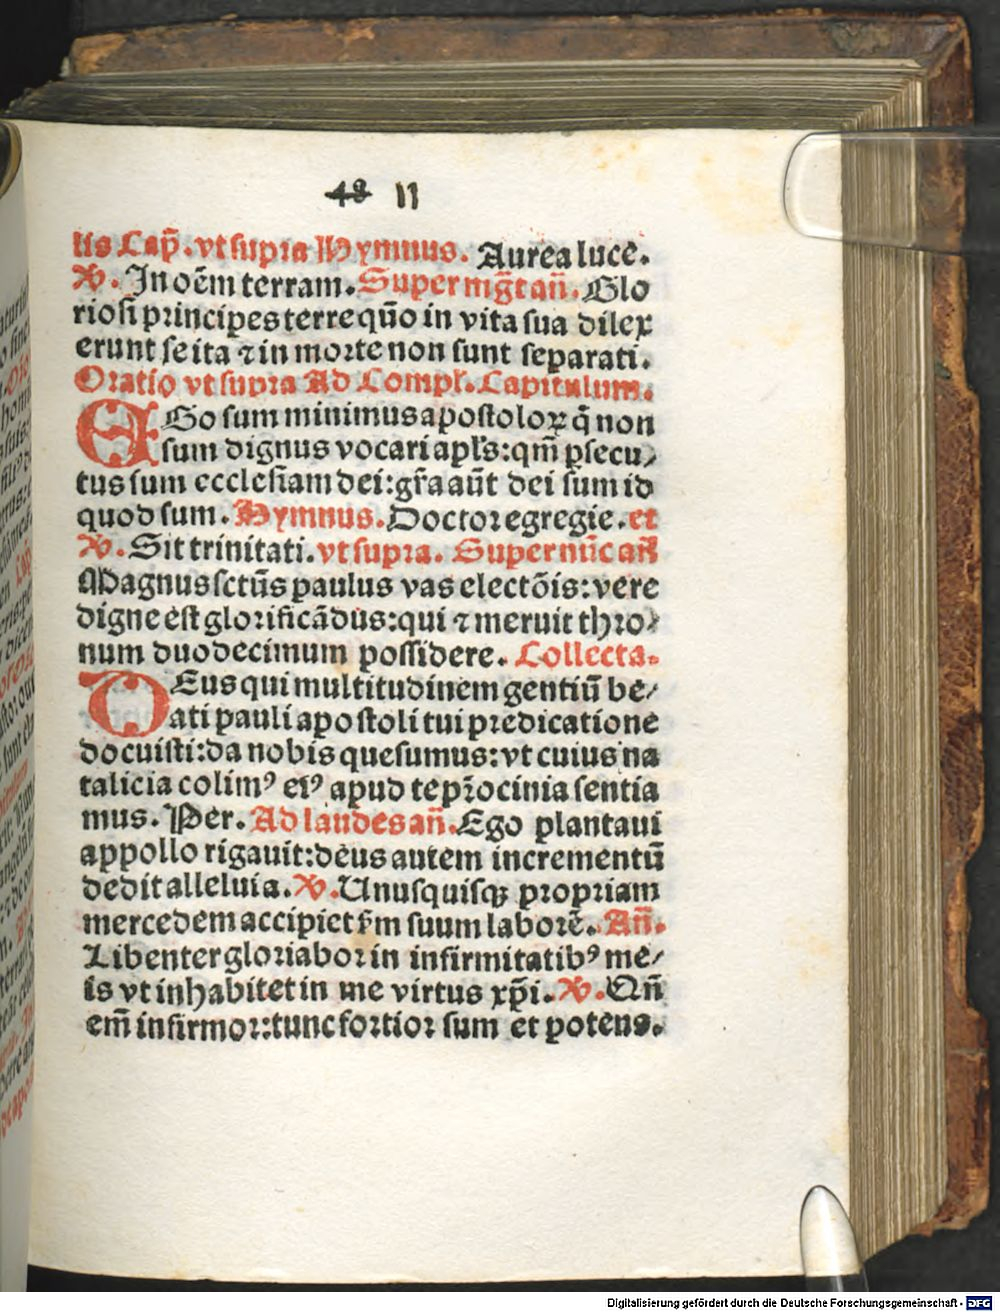 48 11
lis Cap̄. vt supra Hymnus. Aurea luce.
V. In oēm terram. Super mḡt an̄. Glo
riosi principes terre quō in vita sua dilex
erunt se ita ⁊ in morte non sunt separati.
Oratio vt supra Ad Compl. Capitulum.
EGo sum minimus apostoloꝝ q̄ non
sum dignus vocari apl's: qm̄ ꝑsecu⸗
tus sum ecclesiam dei: gr̄a aūt dei sum id
quod sum. Hymnus. Doctor egregie. et
V. Sit trinitati. vt supra. Super nūc an̄
Magnus sctūs paulus vas electōis: vere
digne est glorificādus: qui ⁊ meruit thro⸗
num duodecimum possidere. Collecta.
DEus qui multitudinem gentiū be⸗
ati pauli apostoli tui predicatione
docuisti: da nobis quesumus: vt cuius na
talicia colimꝰ eiꝰ apud te pr̄ocinia sentia
mus. Per. Ad laudes an̄. Ego plantaui
appollo rigauit: deus autem incrementū
dedit alleluia. V. Unusquisqꝫ propriam
mercedem accipiet ẜm suum laborē. An̄.
Libenter gloriabor in infirmitatibꝰ me⸗
is vt inhabitet in me virtus xp̄i. V. Qn̄
em̄ infirmor: tunc fortior sum et potens.
Digitalisierung gefördert durch die Deutsche Forschungsgemeinschaft - DFG